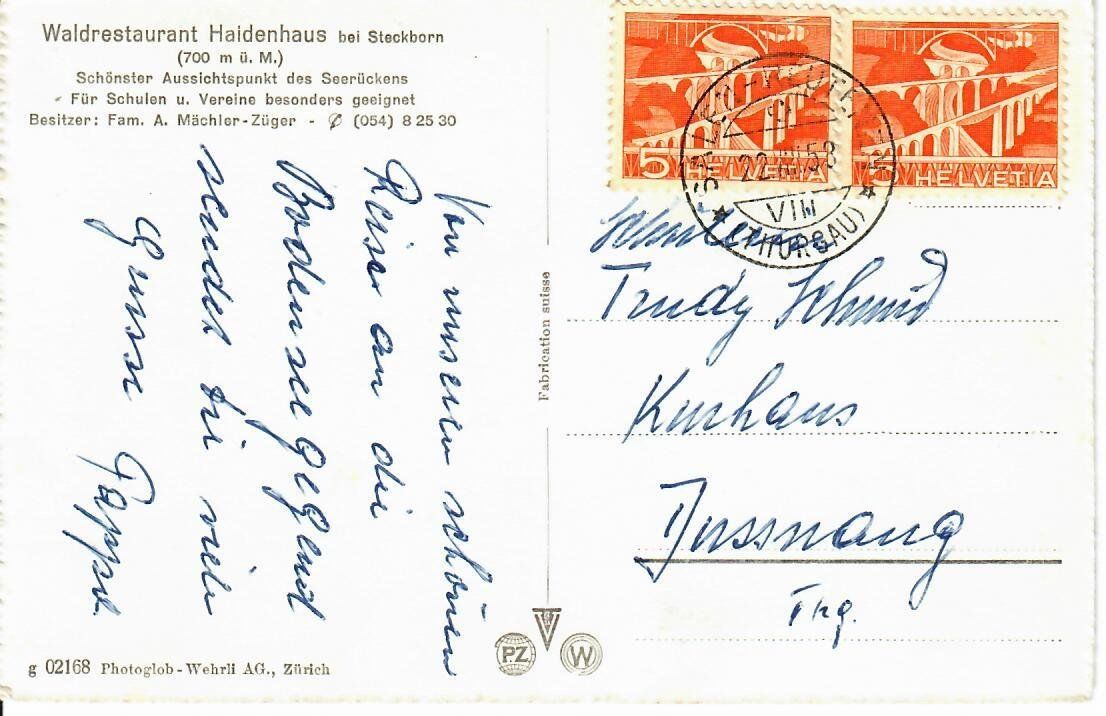 Waldrestaurant Haidenhaus bei Steckborn
(700 m ü. M.)
Schönster Aussichtspunkt des Seerückens
Für Schulen u. Vereine besonders geeignet
Besitzer: Fam. A. Mächler-Züger - ✆ (054) 8 25 30
Von unserer schönen
Reise an die
Bodenseegegend
sendet dir viele
Grüsse
5 HELVETIA
5 HELVETIA
22. VIII 53
VIII
(THURGAU)
Fabrication suisse
Trudy Schmid
Kurhaus
Dussnang
Thg.
PZ
W
g 02168 Photoglob-Wehrli AG., Zürich